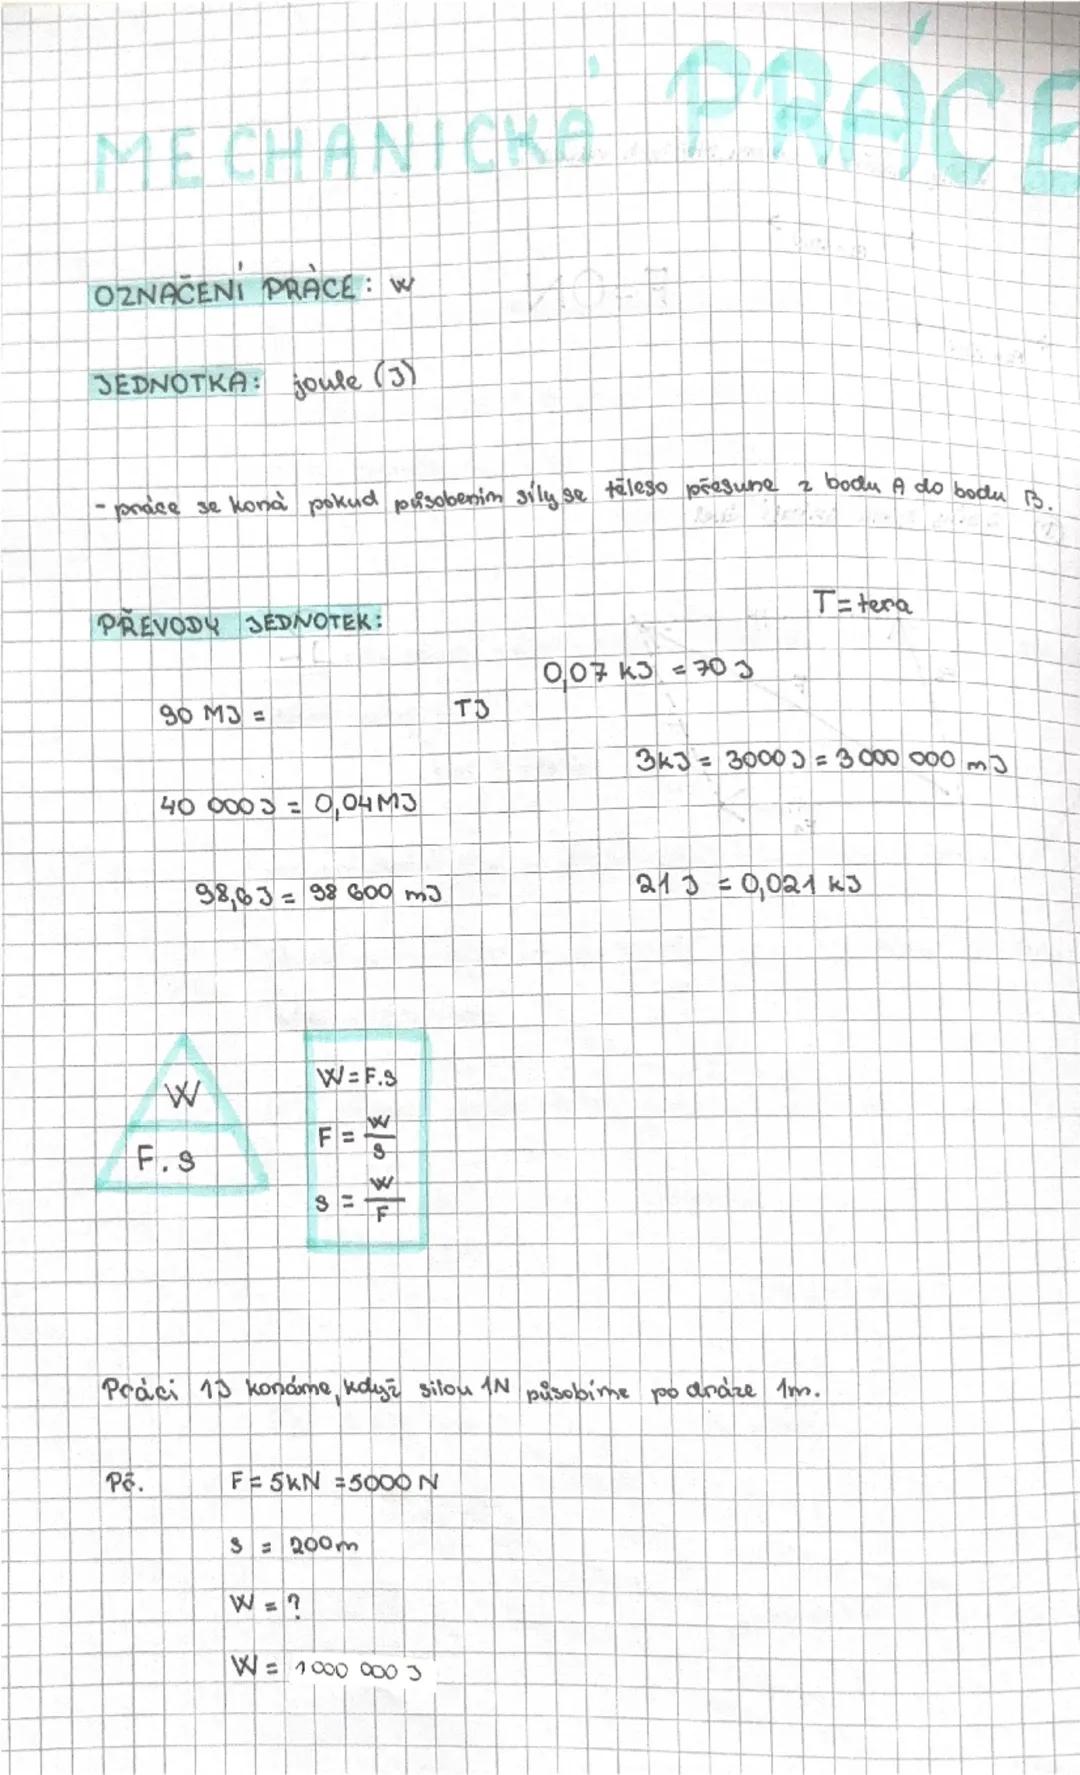 MECHANICKÁ PRÁCE
OZNAČENÍ PRÁCE: W
JEDNOTKA: joule (J)
- práce se koná pokud působením síly se těleso přesune z bodu A do bodu B.
T = tera
PŘEVODY JEDNOTEK:
0,07 kJ = 70 J
90 MJ = TJ
3kJ = 3000 J = 3 000 000 mJ
40 000 J = 0,04 MJ
98,6 J = 98 600 mJ
21 J = 0,021 kJ
W
F . s
W = F.s
F = W/s
s = W/F
Práci 1J konáme, když silou 1N působíme po dráze 1m.
Př. F = 5kN = 5000 N
s = 200m
W = ?
W = 1 000 000 J